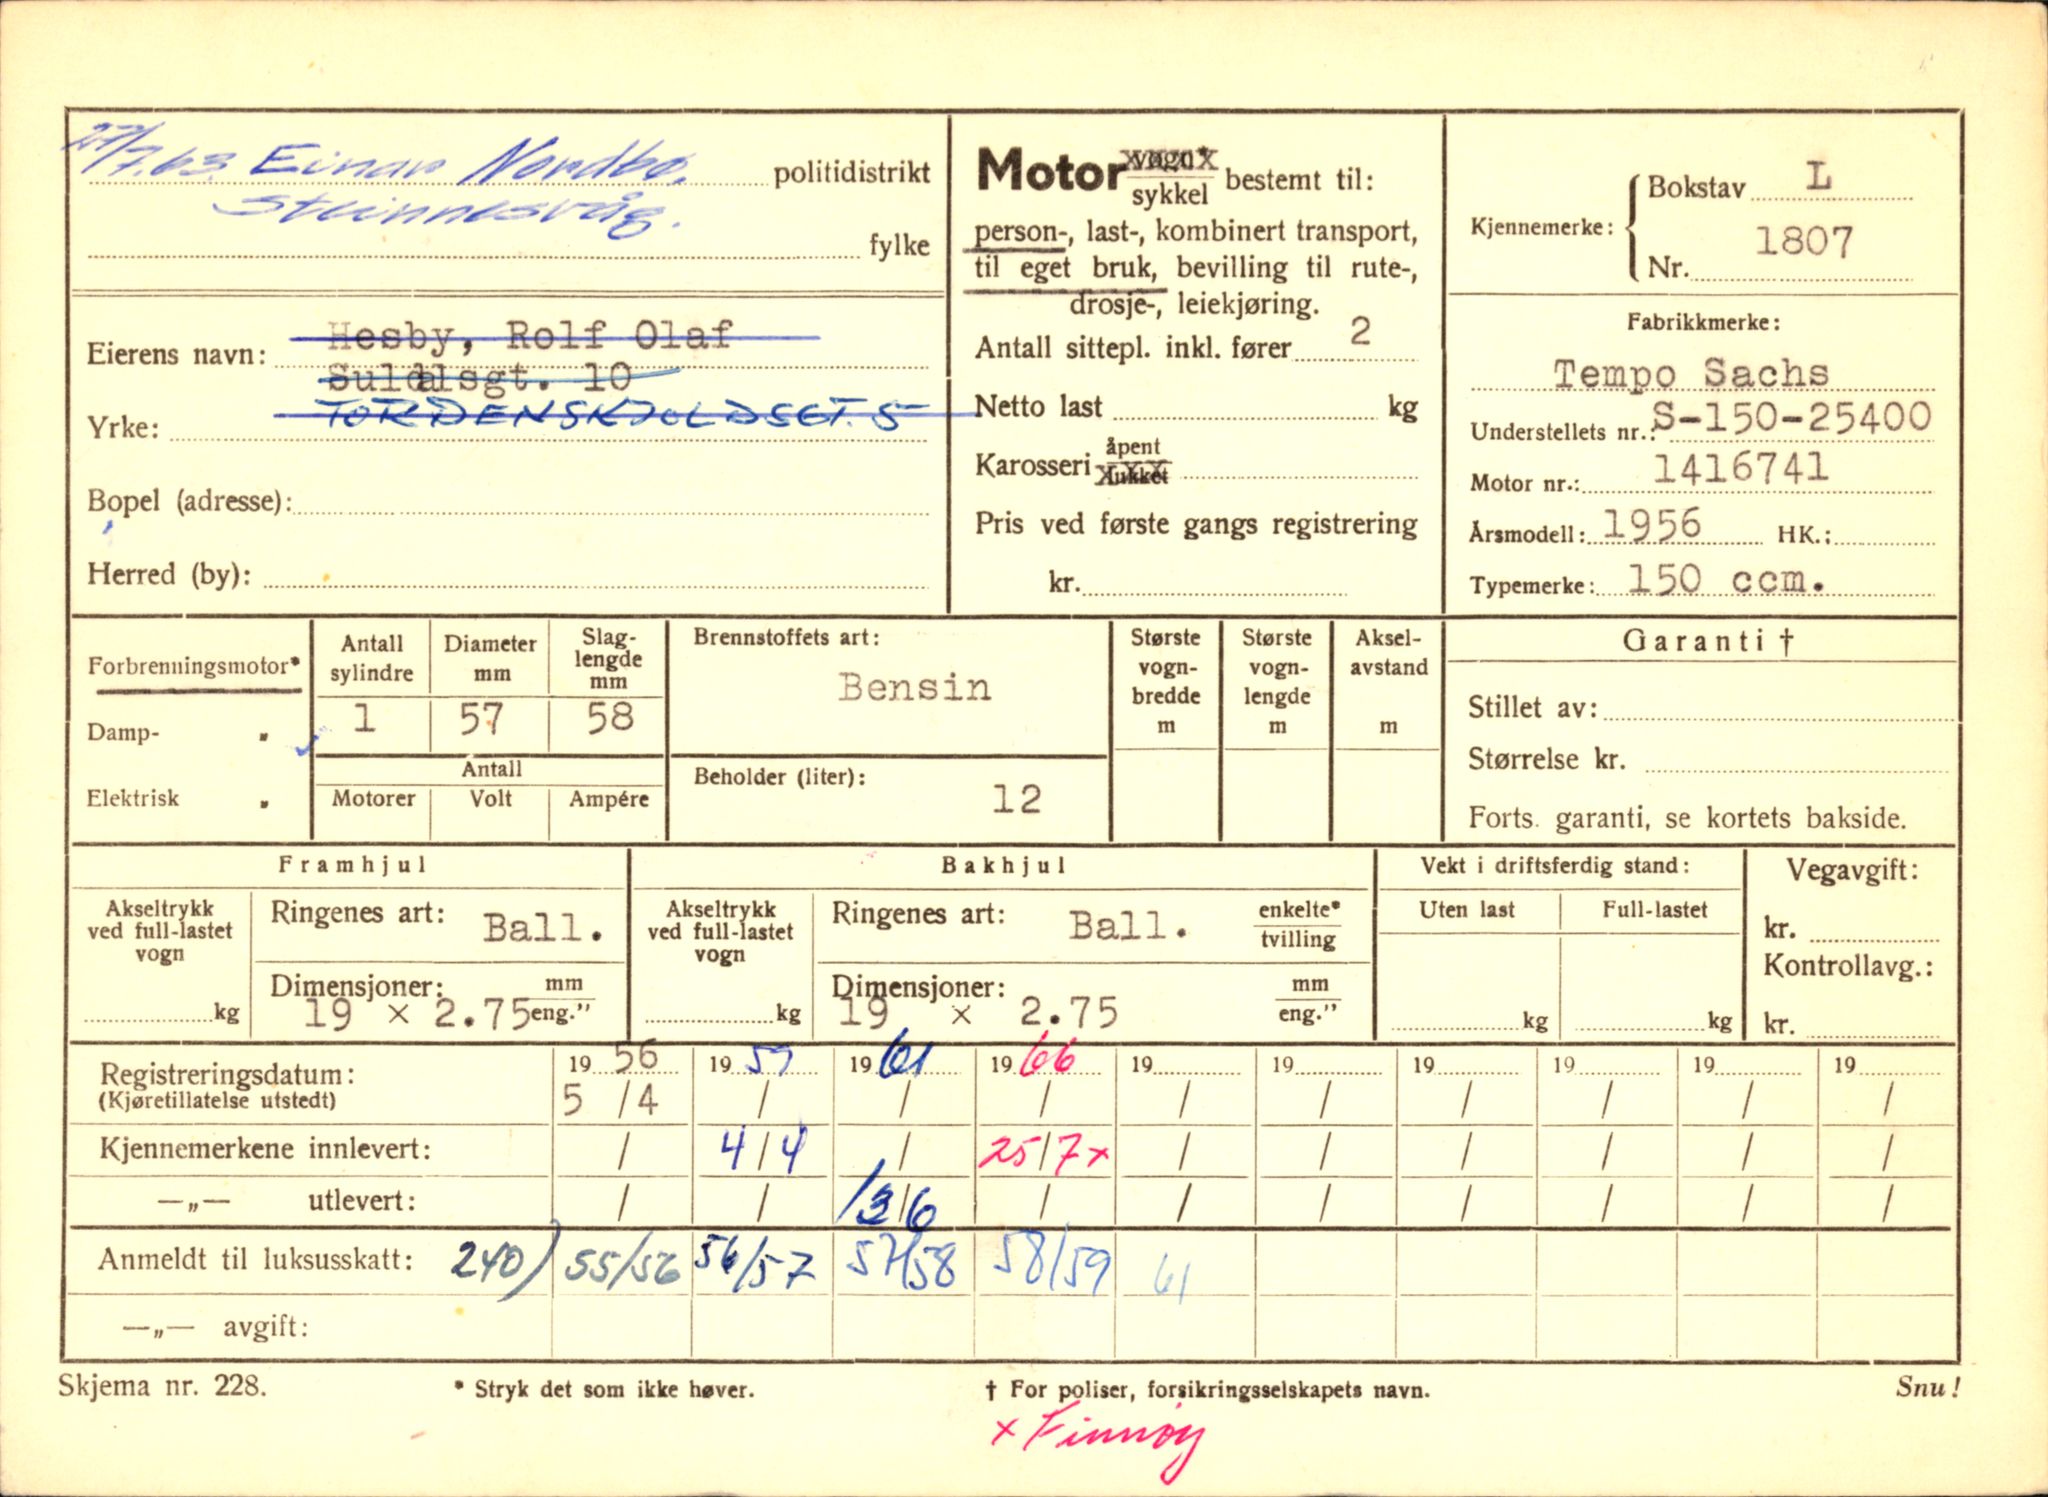 27/7.63. Einar Nordbø. politidistrikt
Steinnesvåg.
fylke
Eierens navn: Hesby, Rolf Olaf
Suldalsgt. 10
Yrke: TORDENSKJOLDSGT. 5
Bopel (adresse):
Herred (by):
Motor vogn* / sykkel bestemt til:
person-, last-, kombinert transport,
til eget bruk, bevilling til rute-,
drosje-, leiekjøring.
Antall sittepl. inkl. fører 2
Netto last kg
Karosseri åpent / lukket
Pris ved første gangs registrering
kr.
Kjennemerke: Bokstav L
Nr. 1807
Fabrikkmerke:
Tempo Sachs
Understellets nr.: S-150-25400
Motor nr.: 1416741
Årsmodell: 1956 HK.:
Typemerke: 150 ccm.
Forbrenningsmotor*
Damp- „
Elektrisk „
Antall sylindre Diameter mm Slag-lengde mm
1 57 58
Antall
Motorer Volt Ampére
Brennstoffets art:
Bensin
Beholder (liter):
12
Største vogn-bredde m
Største vogn-lengde m
Aksel-avstand m
Garanti †
Stillet av:
Størrelse kr.
Forts. garanti, se kortets bakside.
Framhjul
Akseltrykk ved full-lastet vogn
kg
Ringenes art: Ball.
Dimensjoner: mm / eng.”
19 × 2.75
Bakhjul
Akseltrykk ved full-lastet vogn
kg
Ringenes art: Ball. enkelte* / tvilling
Dimensjoner: mm / eng.”
19 × 2.75
Vekt i driftsferdig stand:
Uten last Full-lastet
kg kg
Vegavgift:
kr.
Kontrollavg.:
kr.
Registreringsdatum: 1956 1957 1961 1966 19 19 19 19 19 19
(Kjøretillatelse utstedt) 5/4 / / / / / / / / /
Kjennemerkene innlevert: / 4/4 / 25/7 x / / / / / /
—„— utlevert: / / /3/6 / / / / / / /
Anmeldt til luksusskatt: 240) 55/56 56/57 57/58 58/59 61
—„— avgift:
Skjema nr. 228. * Stryk det som ikke høver. † For poliser, forsikringsselskapets navn. Snu!
x Finnøy